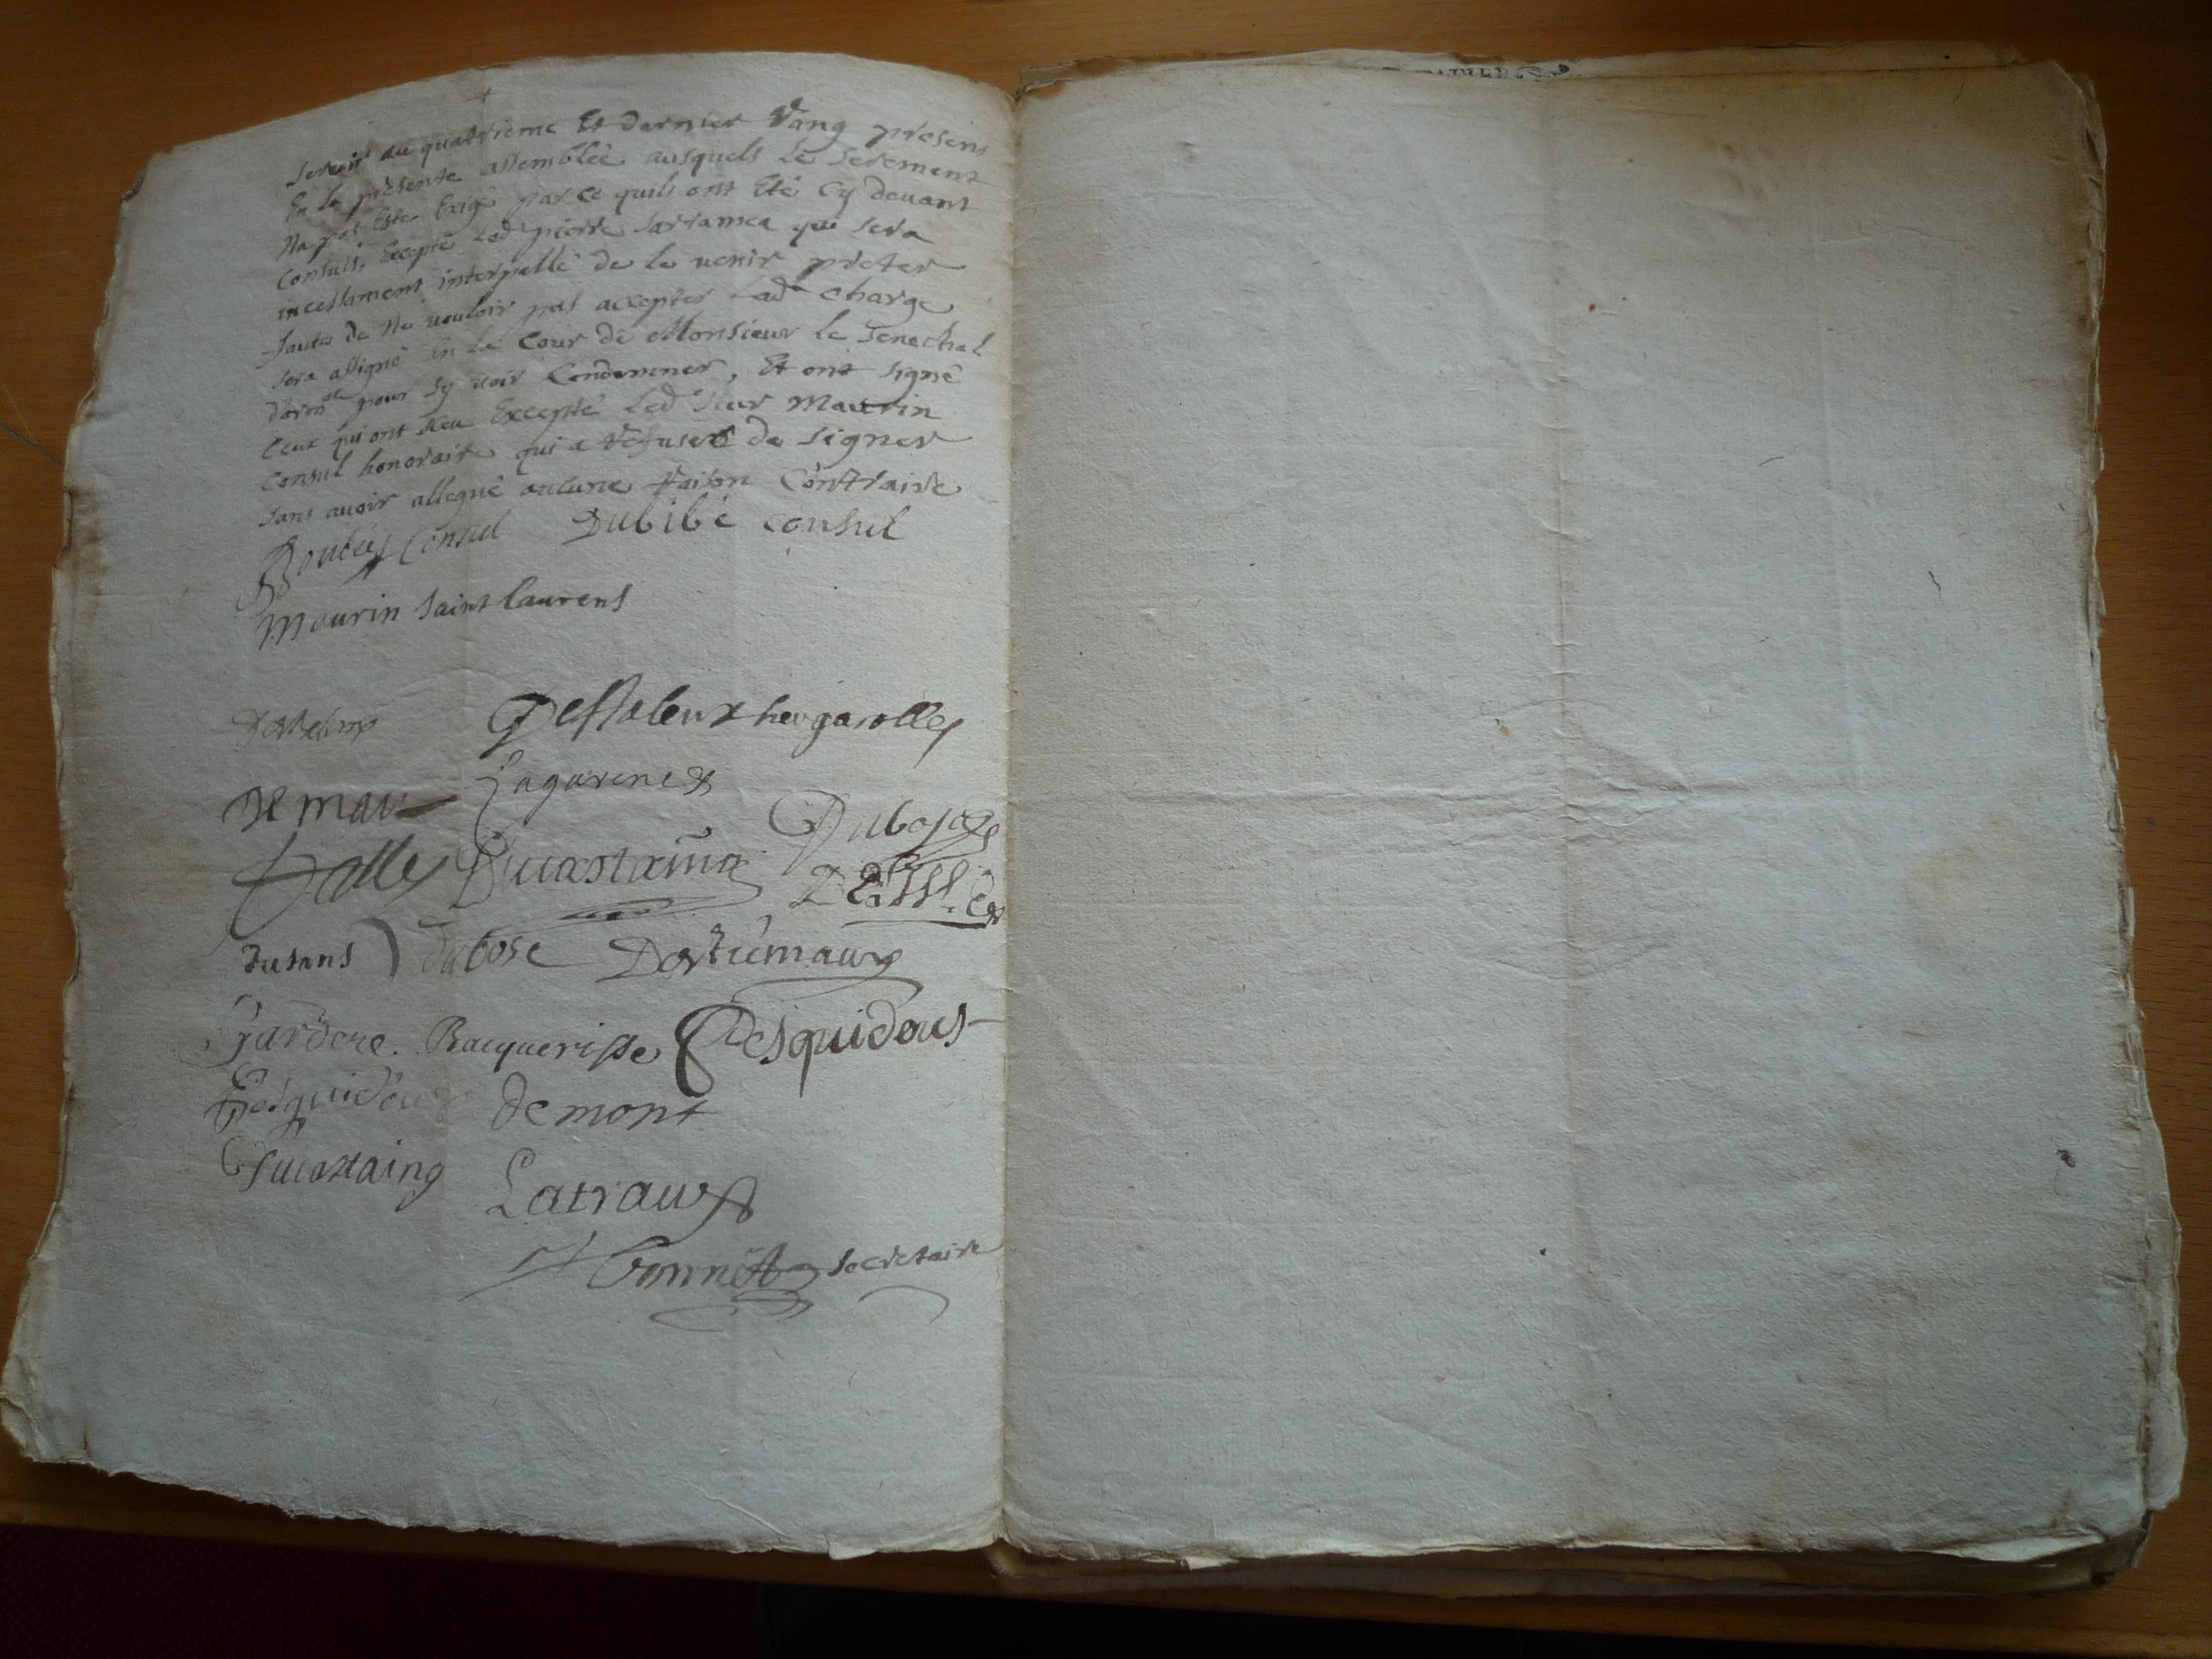 servir au quatrieme Et dernier Rang presens
En la presente assemblée ausquels le serement
Na pas Esté Exigé par ce quils ont Eté Cy devant
Consuls, Excepté led pierre sarramea qui sera
incessament interpellé de le venir preter
faute de Ne vouloir pas accepter lad charge
sera assigné En la Cour de Monsieur le senechal
pour sy voir Condemner, Et ont signé
Ceux qui ont sceu Excepté led sieur Maurin
Consul honoraire qui a refuser de signer
sans avoir allegué aucune raison Contraire
Boubés Consul Dubibé consul
Maurin saint laurens
Lagarene
Ducastaing Dubosc
dusans dubosc Dortumaux
Gardere. Bacquerisse Desquidous
Desquidous demont
Ducastaing
Latraux
Bonnet secretaire